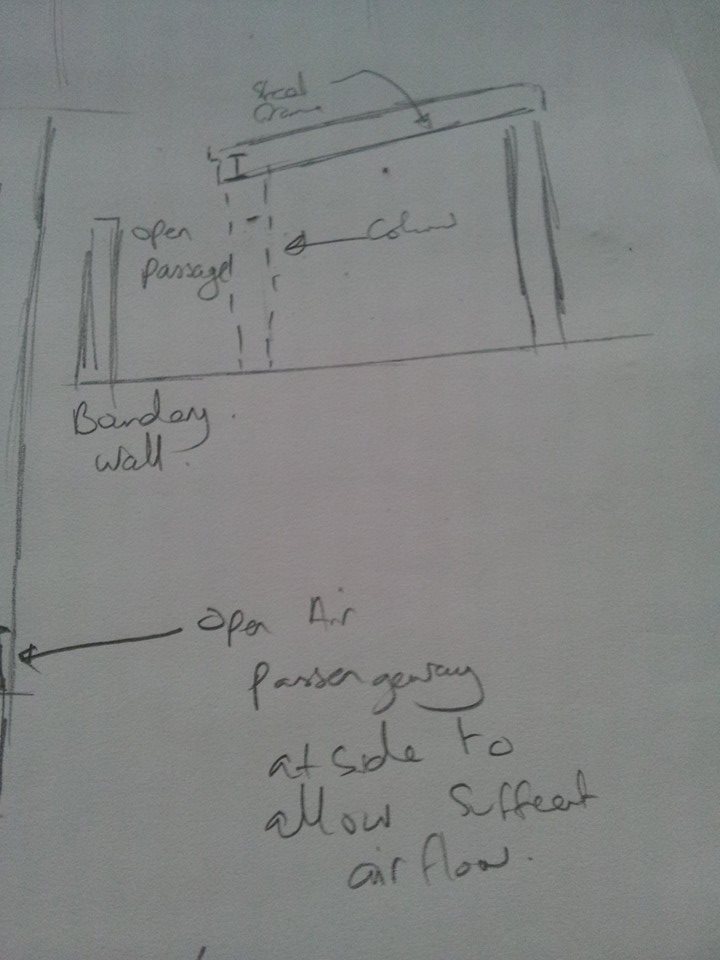 Steel
Frame
Open
Passage
Column
I
Boundary
wall.
Open Air
Passengeway
at side to
allow Suffent
air flow.